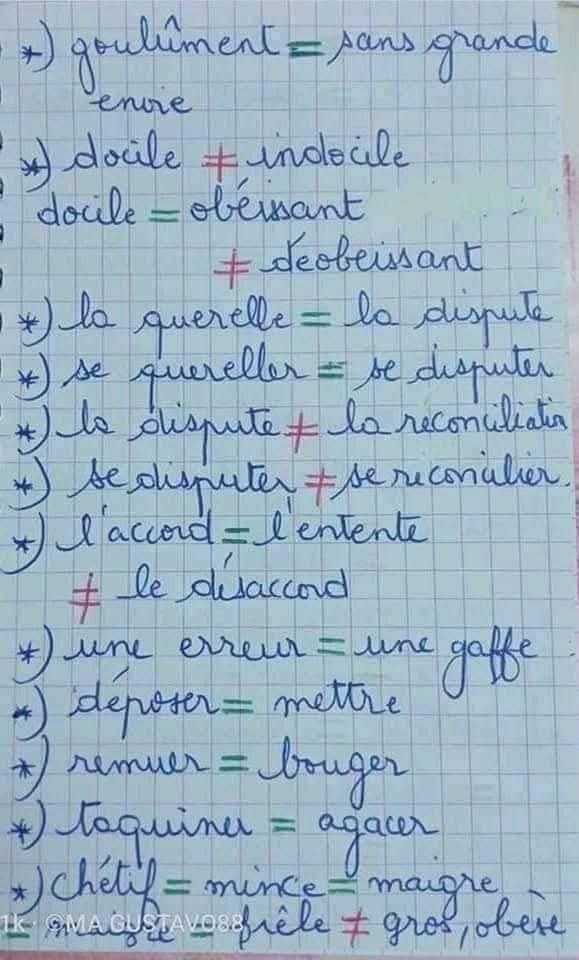 *) goulûment = sans grande
envie
*) docile ≠ indocile
docile = obéissant
≠ déobeissant
*) la querelle = la dispute
*) se quereller = se disputer
*) la dispute ≠ la reconciliation
*) se disputer ≠ se reconcilier.
*) l'accord = l'entente
≠ le désaccord
*) une erreur = une gaffe
*) déposer = mettre
*) remuer = bouger
*) taquiner = agacer
*) chétif = mince = maigre
1k · ©MA GUSTAVO88
= maigre = frêle ≠ gros, obèse